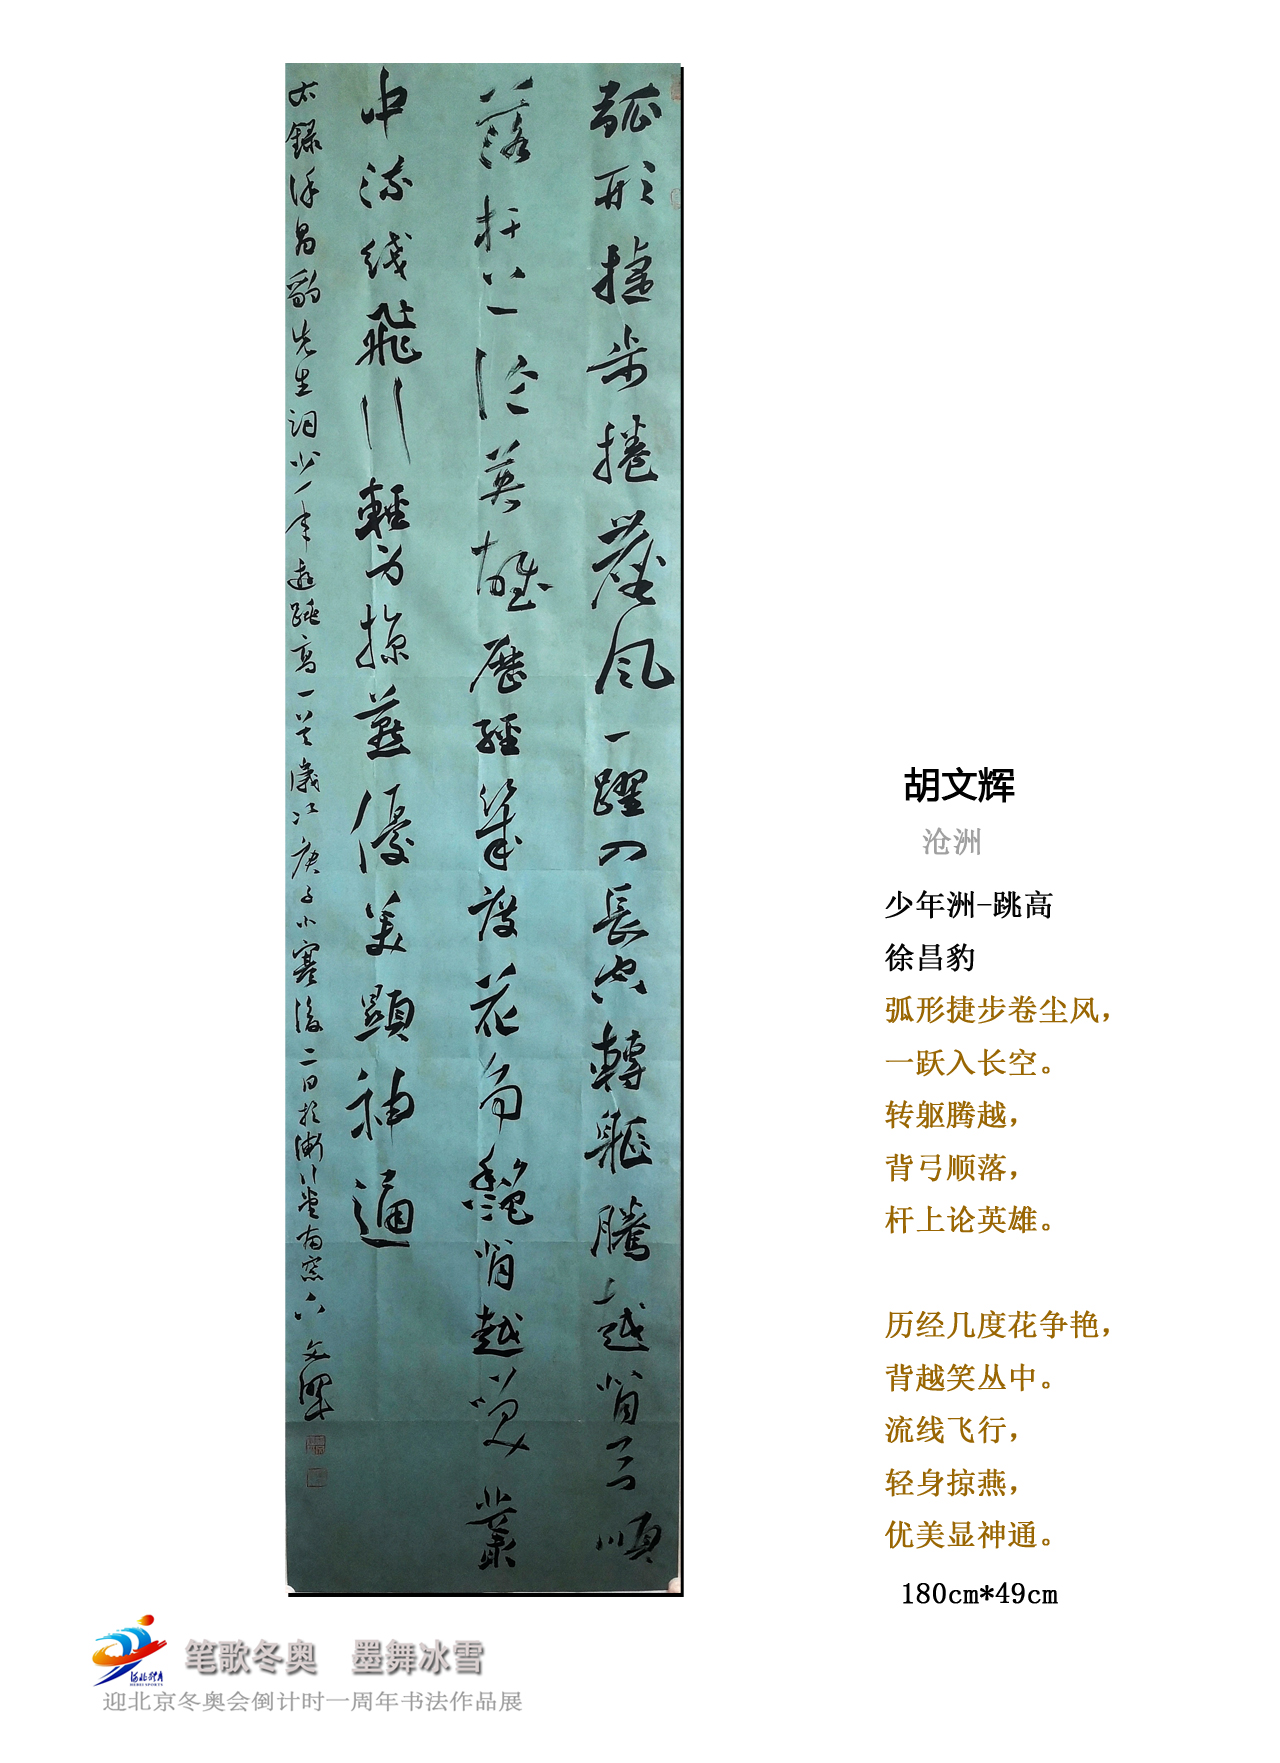 弧形捷步捲塵風一躍入長空轉軀騰越背弓順
落杆上论英雄歷經幾度花争艷背越笑叢
中流线飛行輕身掠燕優美顯神通
右錄徐昌豹先生词少年遊跳高一首歲次庚子小寒後二日於
文輝
胡文辉
沧洲
少年洲-跳高
徐昌豹
弧形捷步卷尘风，
一跃入长空。
转躯腾越，
背弓顺落，
杆上论英雄。
历经几度花争艳，
背越笑丛中。
流线飞行，
轻身掠燕，
优美显神通。
180cm*49cm
河北体育
HEBEI SPORTS
笔歌冬奥 墨舞冰雪
迎北京冬奥会倒计时一周年书法作品展